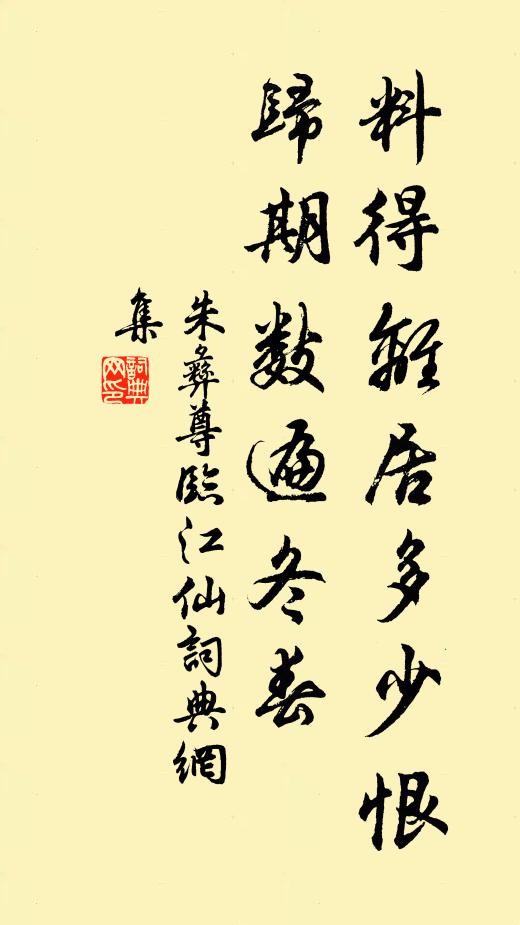 料得離居多少恨
歸期數遍冬春
朱彝尊臨江仙詞典網
集
詞典
网印